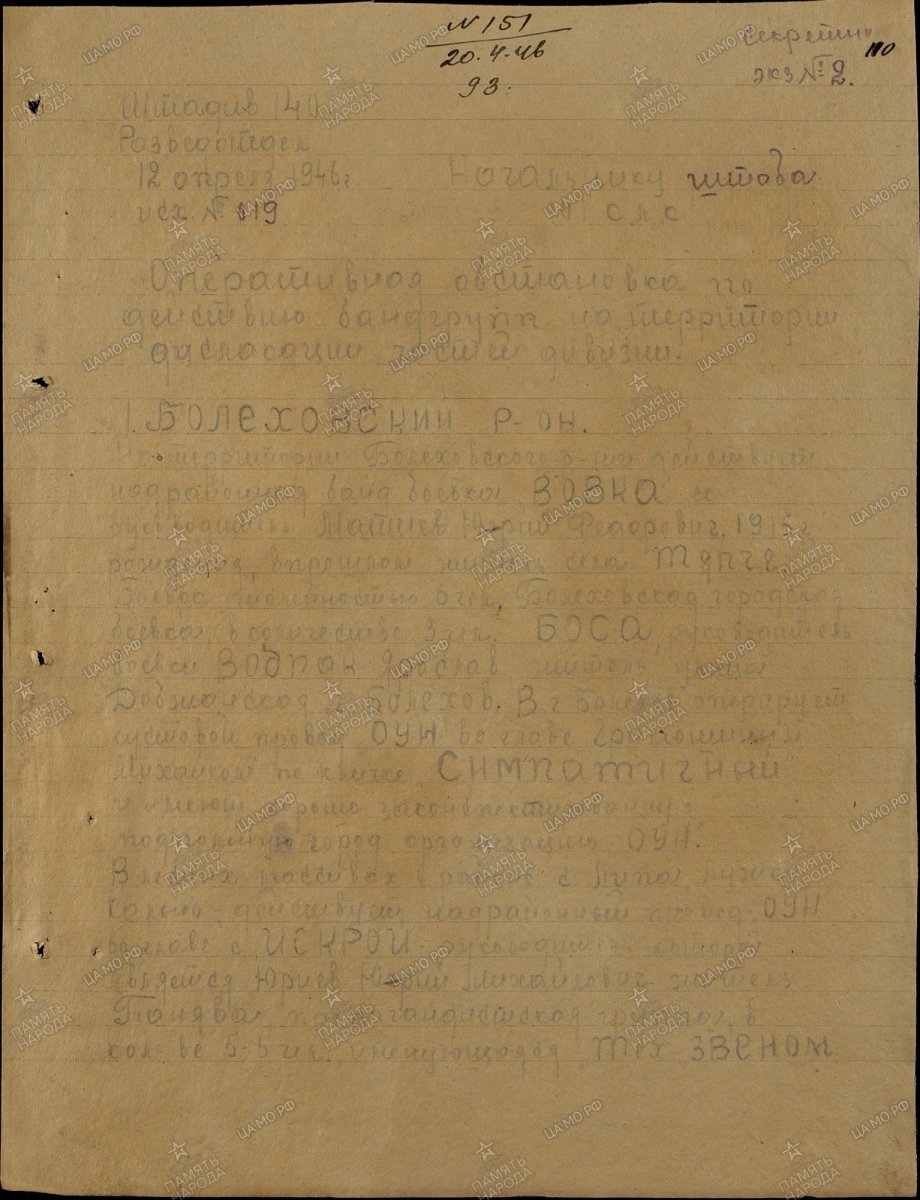 № 151
20.4.46
93.
Секретно
110
экз № 2.
Штадив 140
Разведотдел
12 апреля 1946 г. Начальнику штаба
исх № 119 11 СКС
Оперативная обстановка по
действию бандгрупп на территории
дислокации частей дивизии.
1. БОЛЕХОВСКИЙ Р-ОН.
На территории Болеховского р-на действует
надрайонная банд боевка
руководитель Юрий Федорович, 1915 г
рождения, в прошлом житель села ТЯПЧЕ.
Боевка численностью 6 чел, Болеховская городская
боевка, в количестве 3 чел. БОСА, руководитель
боевки Ярослав житель
г Болехов. В г Болехов оперирует
кустовой провод ОУН во главе
Михайлом по кличке СИМПАТИЧНЫЙ
и имеют хорошо законспектированную
подпольную город организацию ОУН.
В лесных массивах в районе с Липа,
действует надрайонный провод ОУН
во главе с ИСКРОЙ руководителем которой
является Юриев Юрий Михайлович житель
пропагандистская группа, в
кол-ве 5-6 чел. именующаяся Тех ЗВЕНОМ